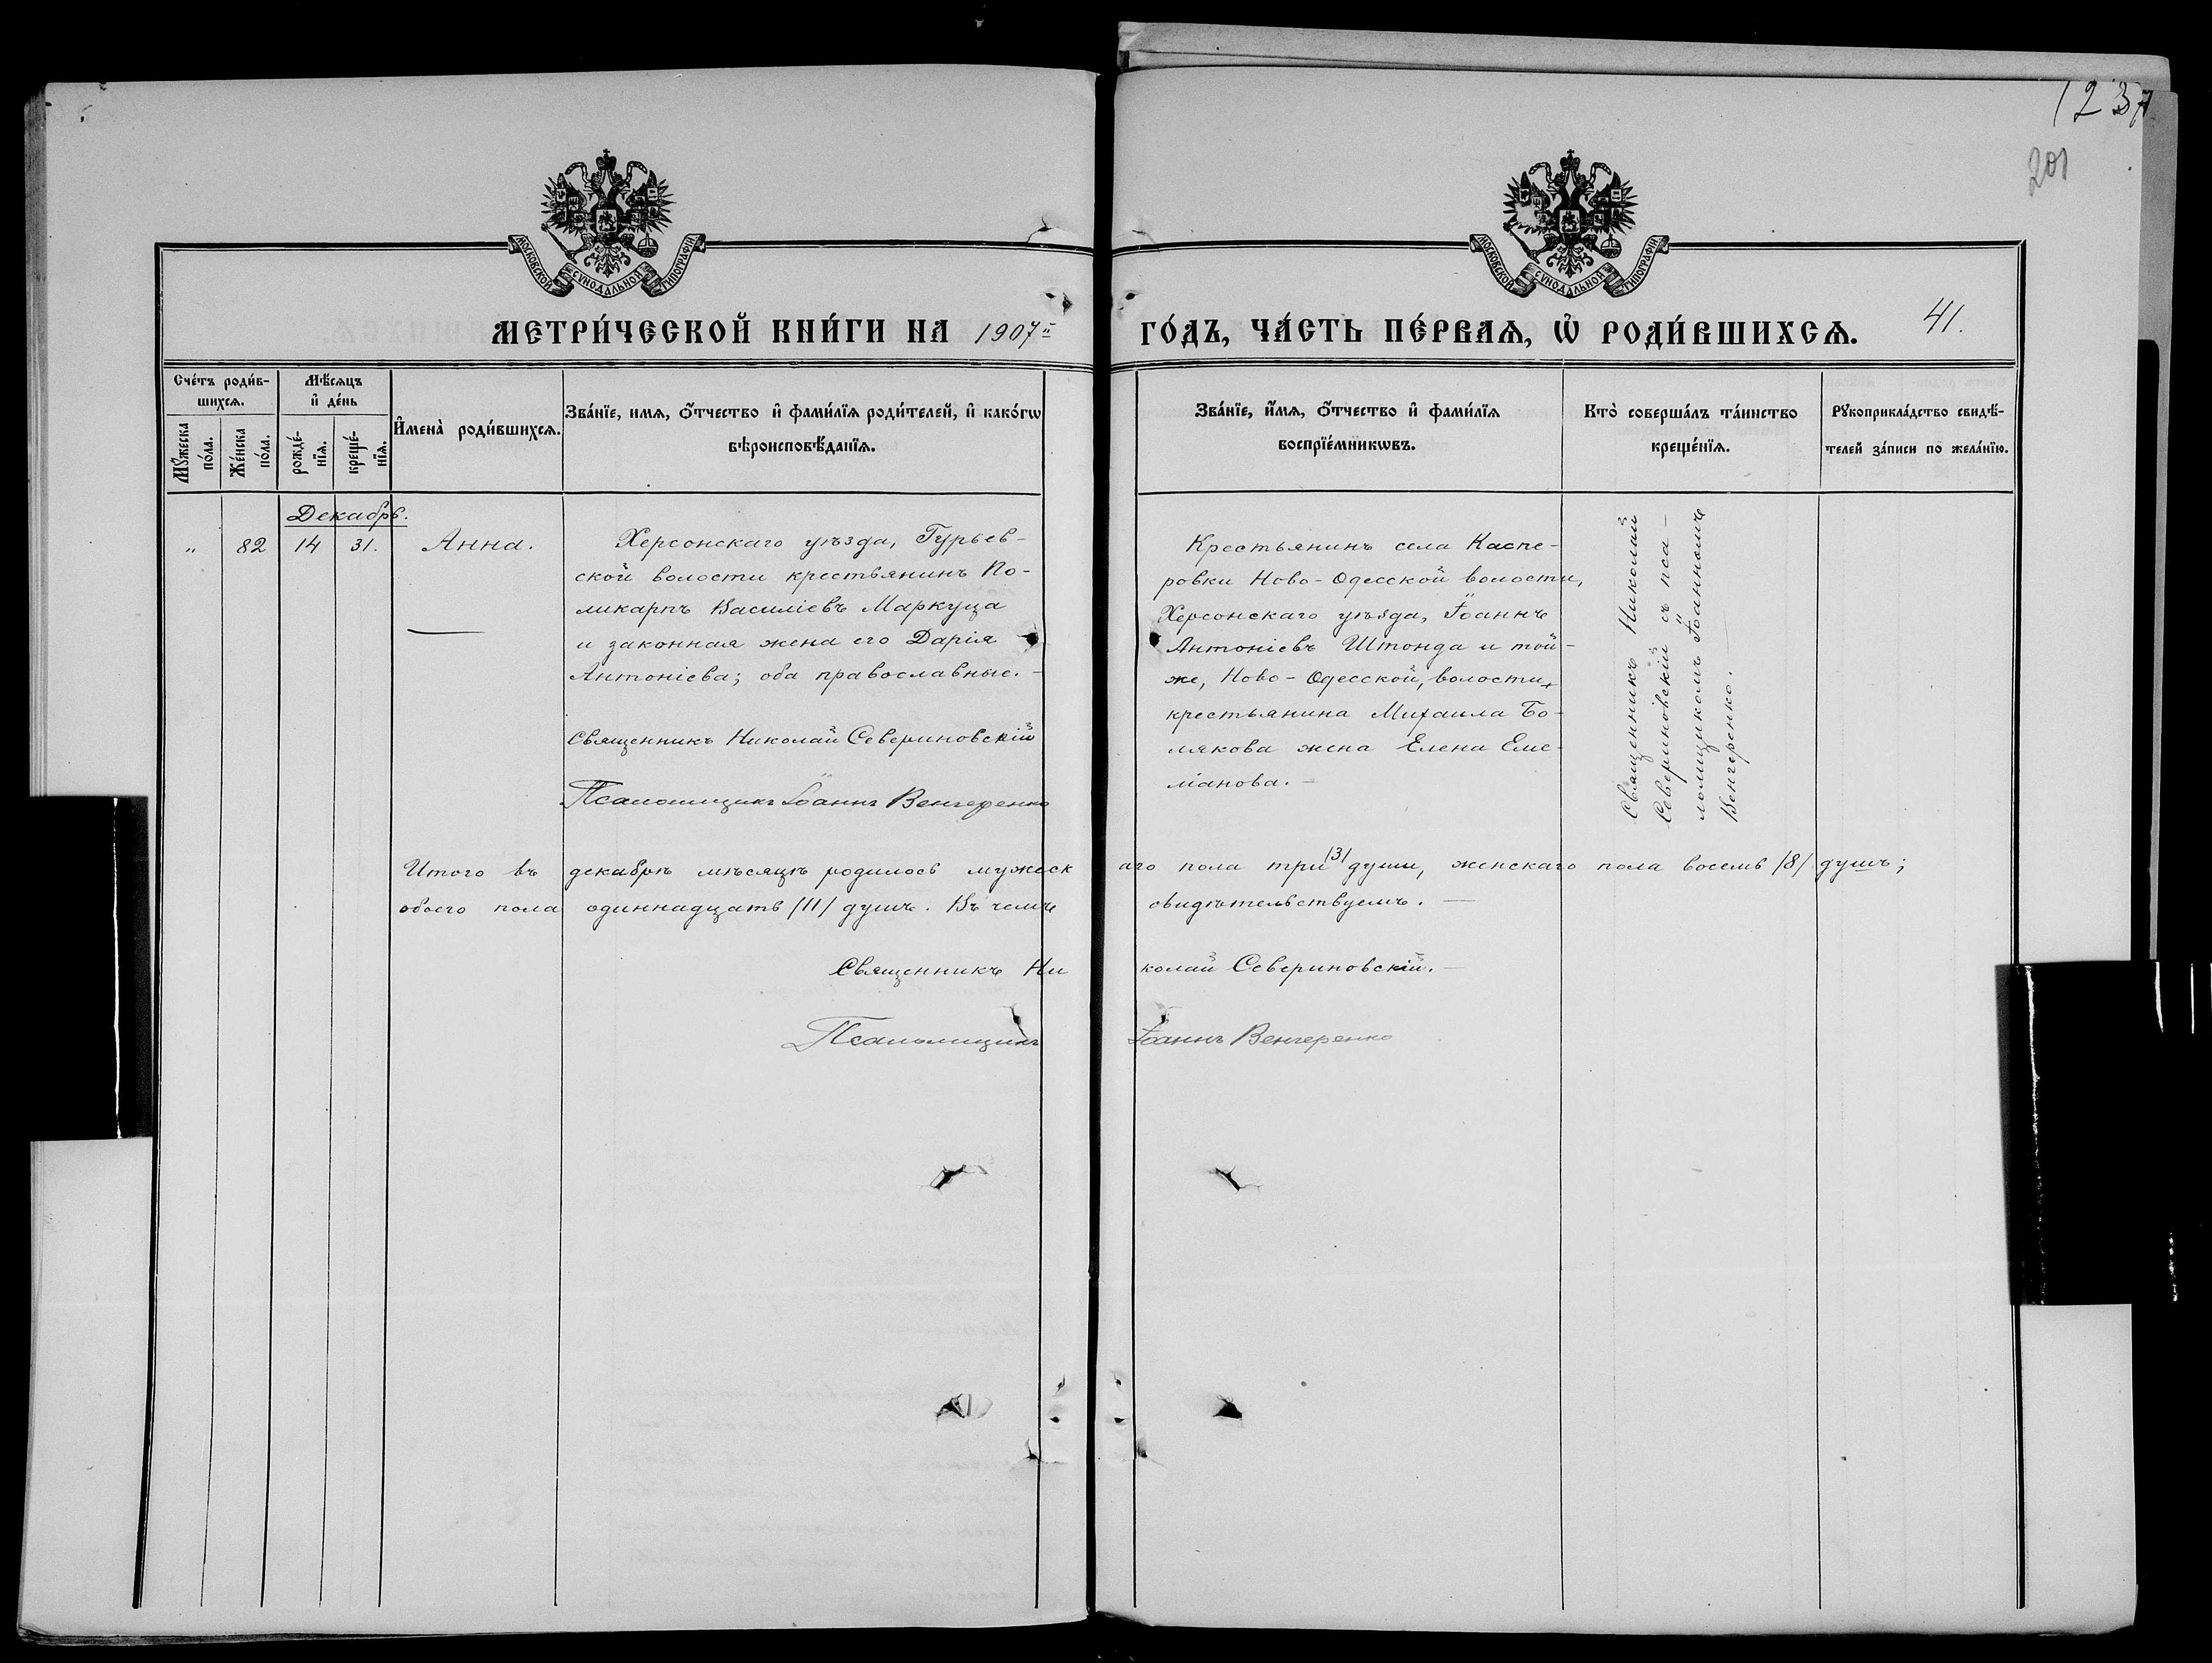 1237
201
МОСКОВСКОЙ СѴНОДАЛЬНОЙ ТИПОГРАФІИ
МОСКОВСКОЙ СѴНОДАЛЬНОЙ ТИПОГРАФІИ
МЕТРИ́ЧЕСКОЙ КНИ́ГИ НА 1907й ГО́ДЪ, ЧА́СТЬ ПЕ́РВАѦ, Ѡ҆ РОДИ́ВШИХСѦ. 41.
Сче́тъ роди́в-
шихсѧ.
Мѹ́жеска по́ла.
Же́нска по́ла.
Мѣ́сѧцъ
и҆ де́нь
рожде́-
нїѧ.
креще́-
нїѧ.
И҆мена̀ роди́вшихсѧ.
Зва́нїе, имѧ, ѻ҆́тчество и҆ фами́лїѧ роди́телей, и҆ како́гѡ
вѣроисповѣ́данїѧ.
Зва́нїе, и҆́мѧ, ѻ҆́тчество и҆ фами́лїѧ
воспрїе́мникѡвъ.
Кто̀ соверша́лъ та́инство
креще́нїѧ.
Рꙋкоприкла́дство свидѣ́-
телей за́писи по жела́нїю.
Декабрь.
„ 82 14 31. Анна.
Херсонскаго уѣзда, Гурьев-
ской волости крестьянинъ По-
ликарпъ Василіевъ Маркуца
и законная жена его Дарія
Антоніева; оба православные. -
Священникъ Николай Севериновскій
Псаломщикъ Іоаннъ Венгеренко
Крестьянинъ села Каспе-
ровки Ново-Одесской волости,
Херсонскаго уѣзда, Іоаннъ
Антоніевъ Штонда и той-
же, Ново-Одесской, волости,
крестьянина Михаила Бо-
лякова жена Елена Еме-
ліанова. -
Священникъ Николай
Севериновскій съ пса-
ломщикомъ Іоанномъ
Венгеренко.
Итого въ декабрѣ мѣсяцѣ родилось мужескаго пола три /3/ души, женскаго пола восемь /8/ душъ;
обоего пола одиннадцать /11/ душъ. Въ чемъ свидѣтельствуемъ. -
Священникъ Николай Севериновскій. -
Псаломщикъ Іоаннъ Венгеренко